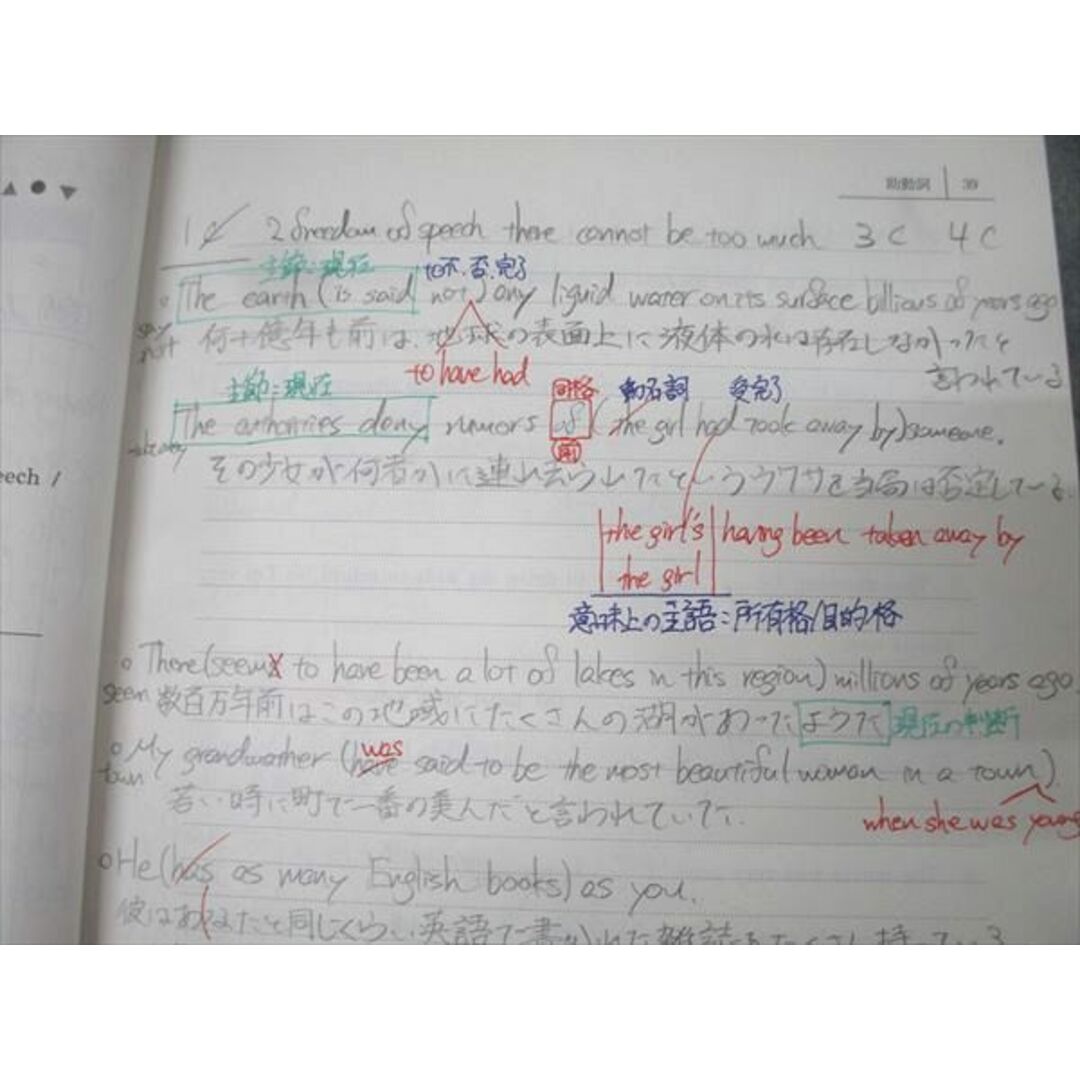 ▲ ● ▼
助動詞 39
1 C 2 freedom of speech there cannot be too much 3 C 4 C
主節:現在 to不.否.完了
The earth (is said not) any liquid water on its surface billions of years ago
say not
何十億年も前は、地球の表面上に液体の水は存在しなかったと
言われている
to have had
主節:現在 同格 動名詞 受完了
The authorities deny rumors of (the girl had took away by) someone.
前
その少女が何者かに連れ去られたというウワサを当局は否定している.
eech /
the girl's having been taken away by
the girl
意味上の主語:所有格/目的格
There (seems to have been a lot of lakes in this region) millions of years ago.
seem 数百万年前はこの地域にたくさんの湖があったようだ 現在の判断
was
My grandmather (have said to be the most beautiful woman in a town).
town
若い時に町で一番の美人だと言われていた.
when she was young
He (has as many English books) as you.
彼はあなたと同じくらい英語で書かれた雑誌をたくさん持っている